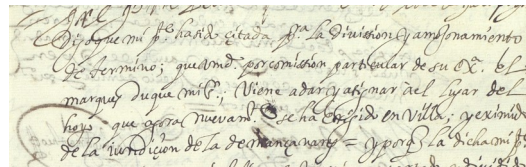 Digo que mi p.te ha sido citada p.a la division y amojonamiento
de termino; que vmd. por comission particular de su ex.a el
marques duque mi s.r, Viene a dar y asignar al lugar del
hoyo que aora nuevam.te se ha erigido en Villa; y eximido
de la jurisdicion de la de mançanares = y porq. la dicha mi p.te